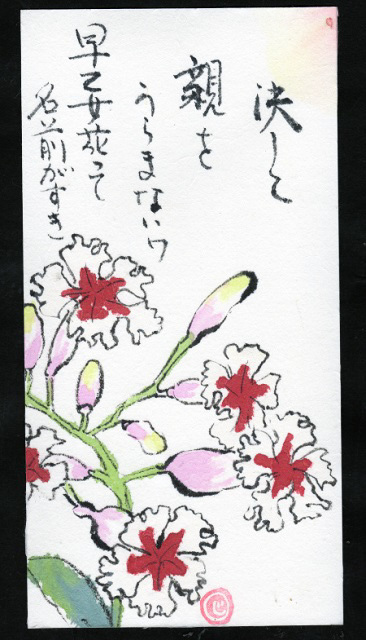 決して
親を
うらまないワ
早乙女花って
名前がすき